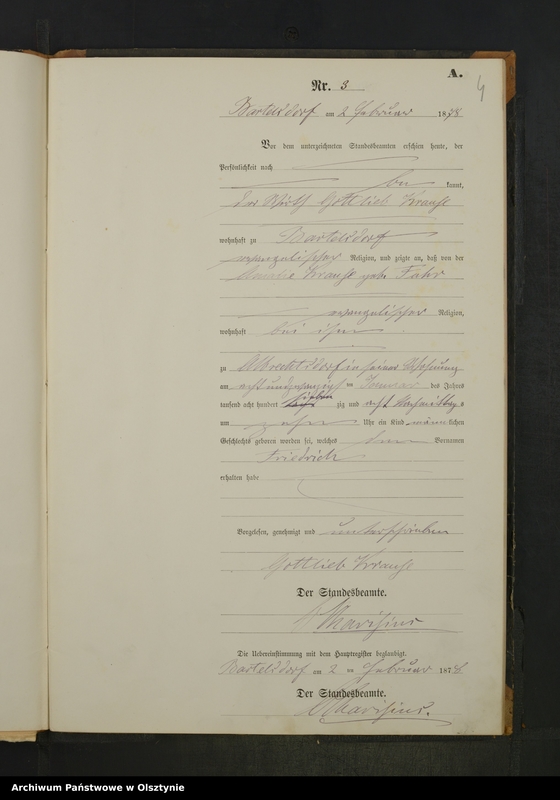 A.
4
Nr. 3
Bartelsdorf am 2 Februar 1878
Vor dem unterzeichneten Standesbeamten erschien heute, der
Persönlichkeit nach
be kannt,
der Wirth Gottlieb Krause
wohnhaft zu Bartelsdorf
evangelischer Religion, und zeigte an, daß von der
Amalie Krause geb. Fahr
evangelischer Religion,
wohnhaft bei ihm
zu Albrechtsdorf in seiner Wohnung
am acht und zwanzigsten Januar des Jahres
tausend acht hundert sieben zig und acht Nachmittags
um zehn Uhr ein Kind männlichen
Geschlechts geboren worden sei, welches den Vornamen
Friedrich
erhalten habe
Vorgelesen, genehmigt und unterschrieben
Gottlieb Krause
Der Standesbeamte.
Die Uebereinstimmung mit dem Hauptregister beglaubigt.
Bartelsdorf am 2 ten Februar 1878
Der Standesbeamte.
Archiwum Państwowe w Olsztynie